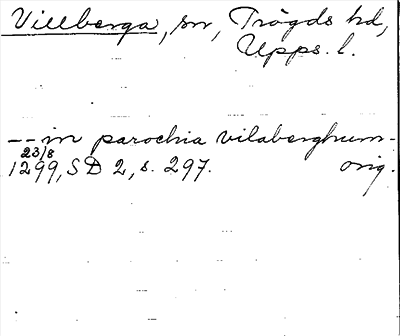 Villberga, sn, Trögds hd,
Upps. l.
-- in parochia vilaberghum-
23/8
1299, SD 2, s. 297. orig.